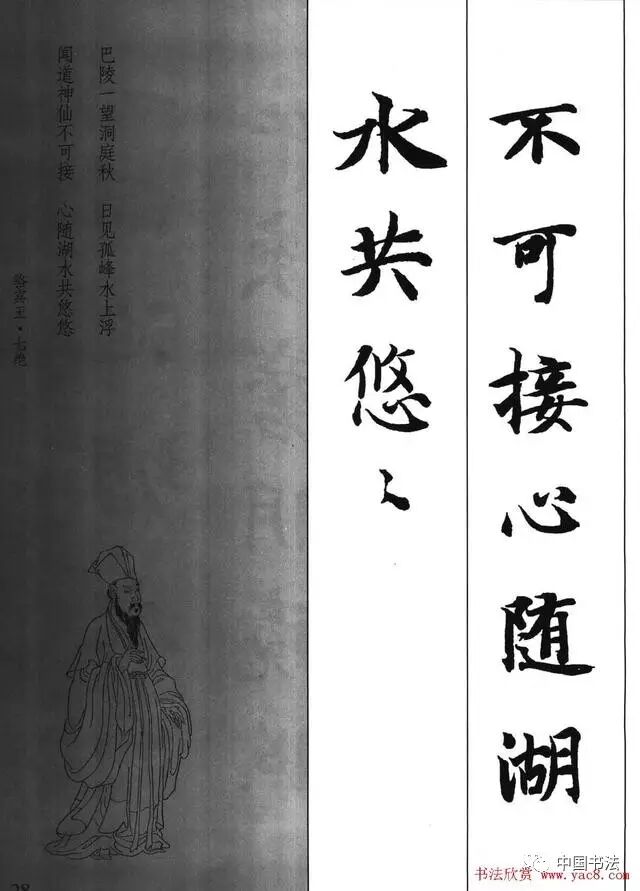 不可接心随湖
水共悠〻
巴陵一望洞庭秋 日见孤峰水上浮
闻道神仙不可接 心随湖水共悠悠
骆宾王·七绝
28
中国书法
书法欣赏 www.yac8.com